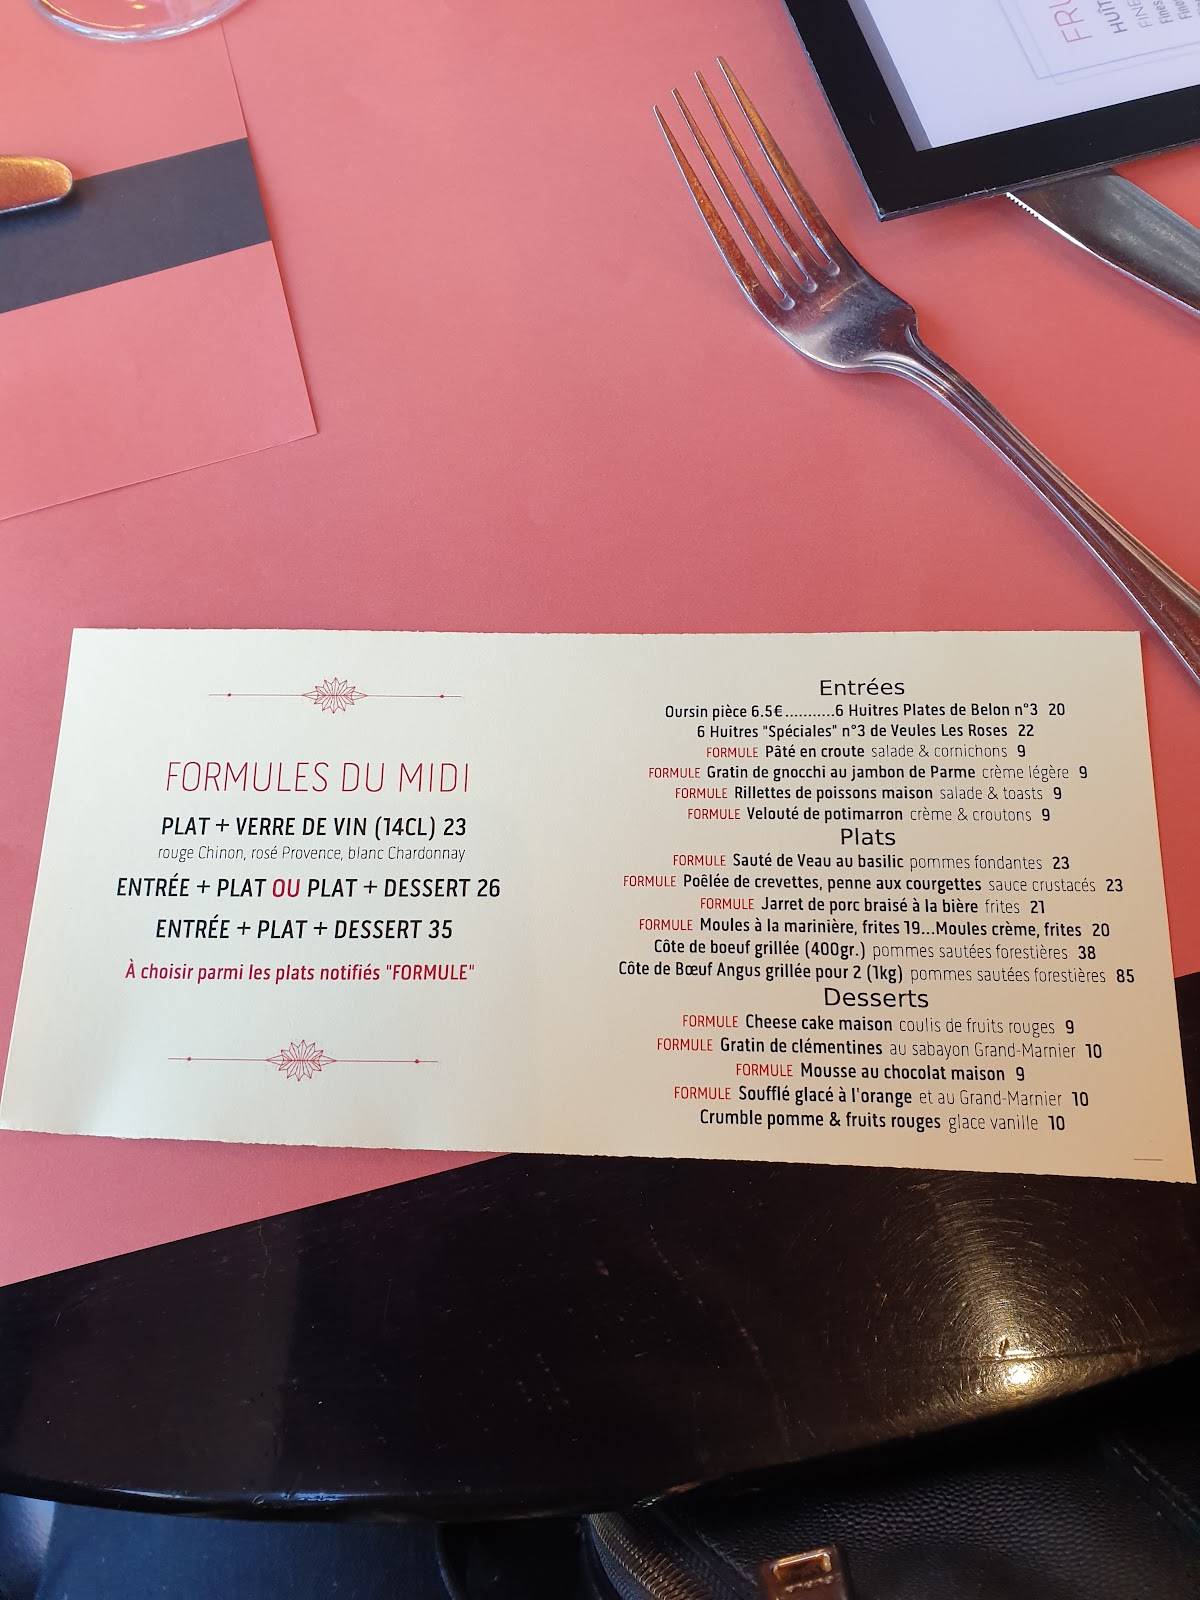 FRU
HUIT
FINE
Fines
Fine
FORMULES DU MIDI
PLAT + VERRE DE VIN (14CL) 23
rouge Chinon, rosé Provence, blanc Chardonnay
ENTRÉE + PLAT OU PLAT + DESSERT 26
ENTRÉE + PLAT + DESSERT 35
À choisir parmi les plats notifiés "FORMULE"
Entrées
Oursin pièce 6.5€...........6 Huitres Plates de Belon n°3 20
6 Huitres "Spéciales" n°3 de Veules Les Roses 22
FORMULE Pâté en croute salade & cornichons 9
FORMULE Gratin de gnocchi au jambon de Parme crème légère 9
FORMULE Rillettes de poissons maison salade & toasts 9
FORMULE Velouté de potimarron crème & croutons 9
Plats
FORMULE Sauté de Veau au basilic pommes fondantes 23
FORMULE Poêlée de crevettes, penne aux courgettes sauce crustacés 23
FORMULE Jarret de porc braisé à la bière frites 21
FORMULE Moules à la marinière, frites 19...Moules crème, frites 20
Côte de boeuf grillée (400gr.) pommes sautées forestières 38
Côte de Bœuf Angus grillée pour 2 (1kg) pommes sautées forestières 85
Desserts
FORMULE Cheese cake maison coulis de fruits rouges 9
FORMULE Gratin de clémentines au sabayon Grand-Marnier 10
FORMULE Mousse au chocolat maison 9
FORMULE Soufflé glacé à l'orange et au Grand-Marnier 10
Crumble pomme & fruits rouges glace vanille 10